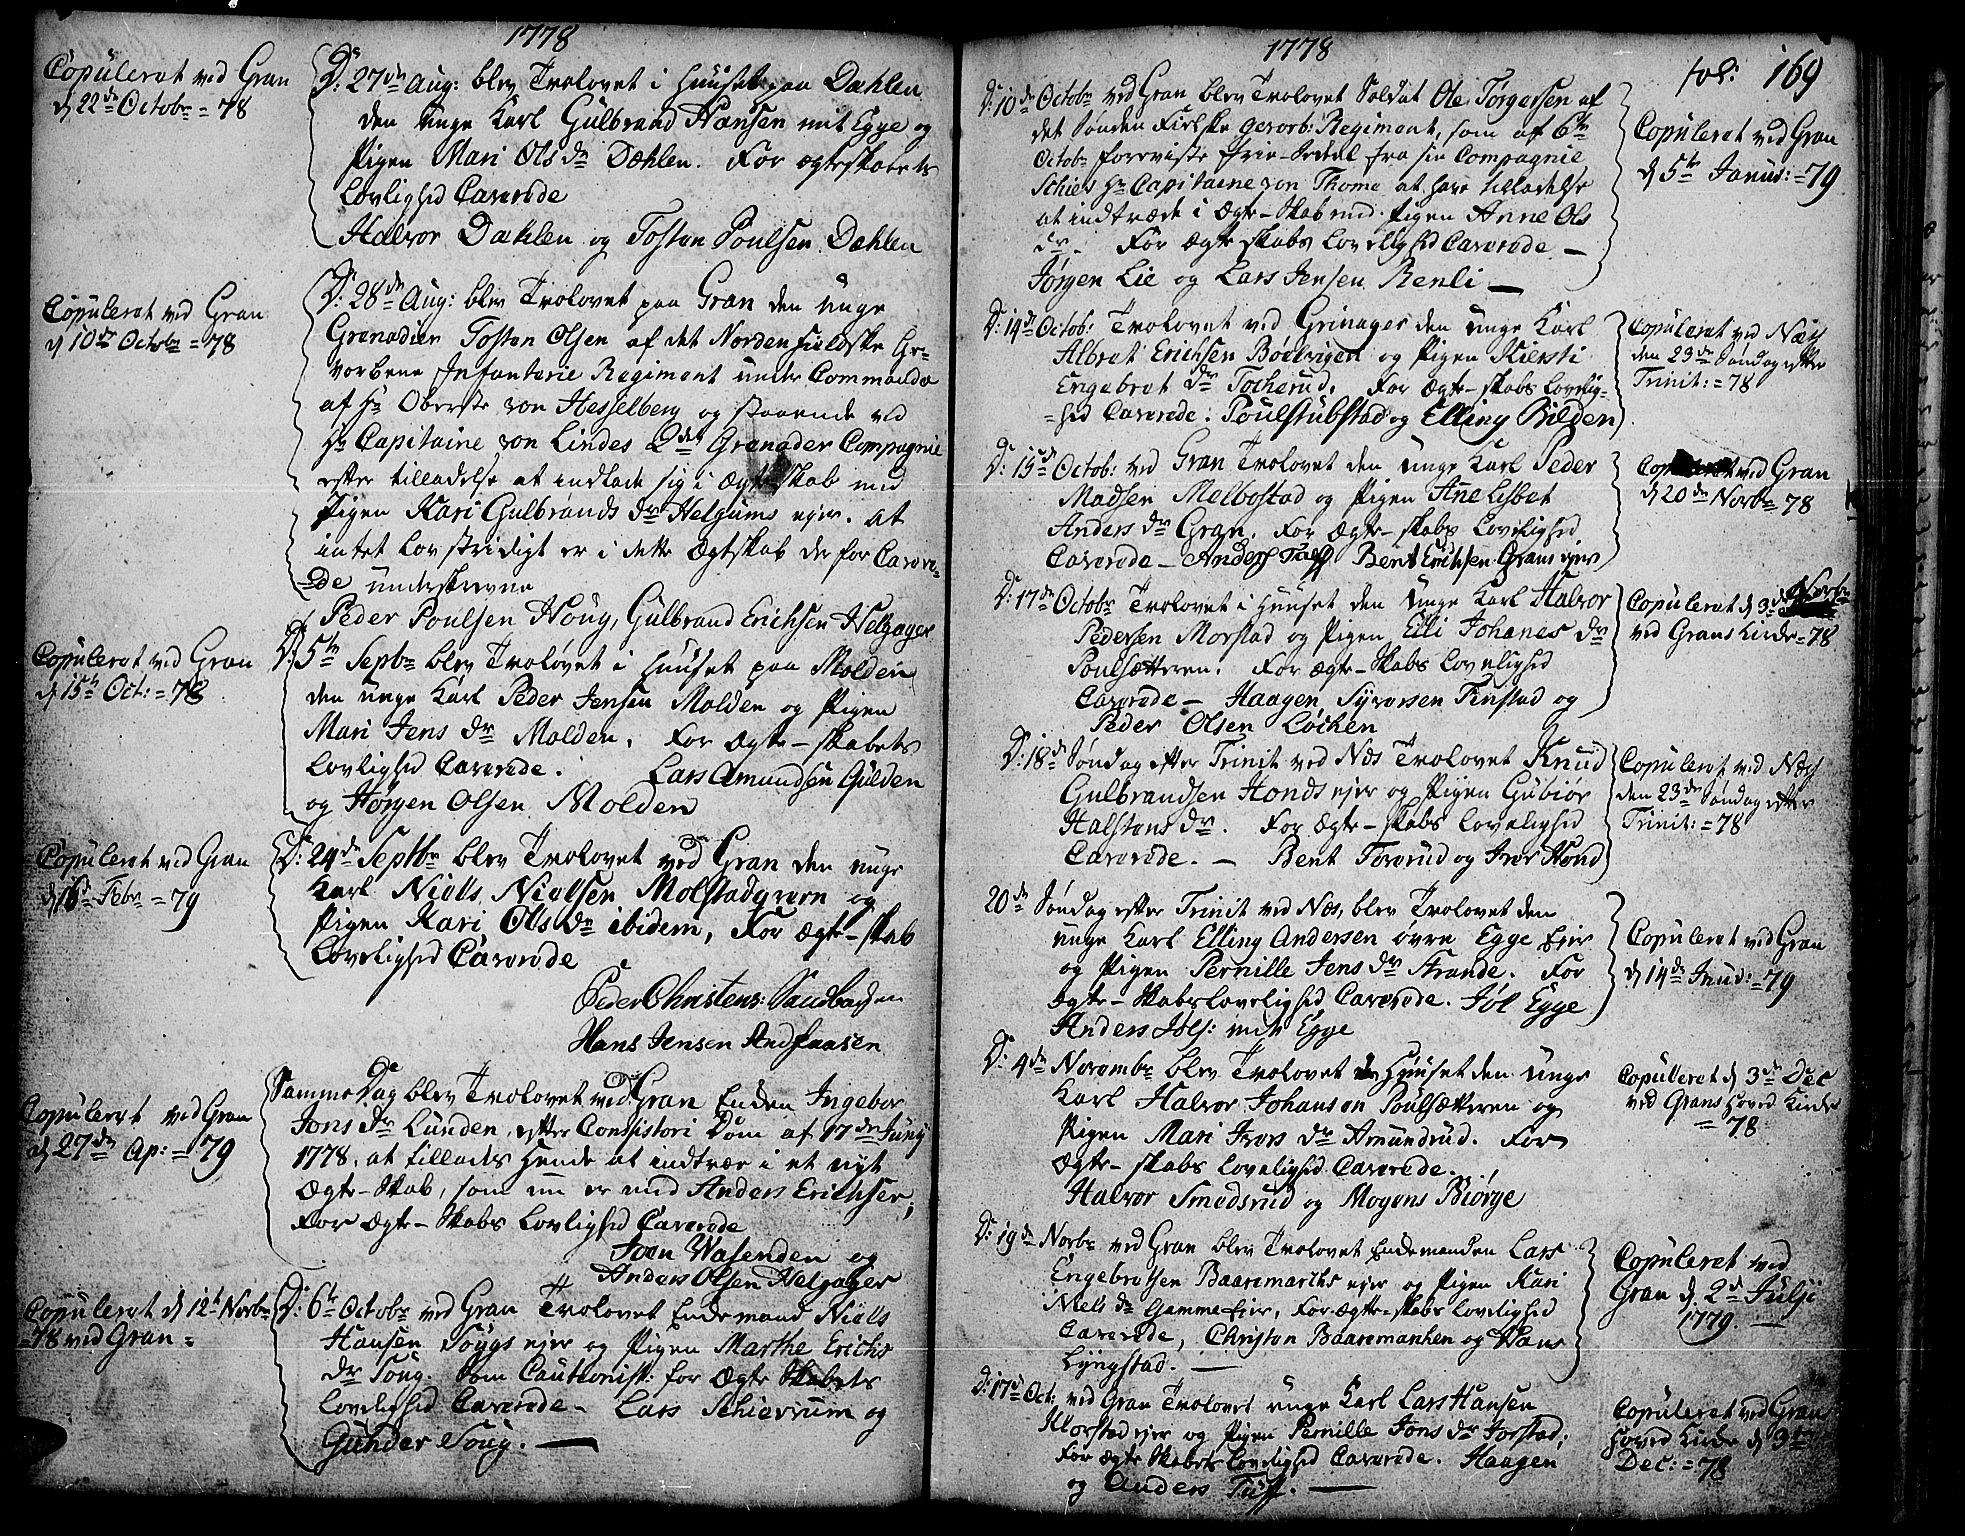 1778
Copulerat ved Gran
d 22de Octobr = 78
D: 27de Aug: blev Trolovet i Huuset paa Dæhlen
den unge Karl Gulbrand Hansen mit Egge og
Pigen Mari Ols dr Dæhlen. For ægteskabets
Lovlighed Caverede
Halvor Dæhlen og Tostan Poulsen Dæhlen
Copulerat ved Gran
d 10de Octobr = 78
D: 28de Aug: blev Trolovet paa Gran den unge
Granadier Tostan Olsen af det Nordenfieldske Ge-
vorbene Infanterie Regiment under Commando
af Hr Oberste von Hesselberg og staaende ved
Hr Capitaine von Lindes 2det Granader Compagnie
efter tilladelse at indlade sig i Ægte-skab med
Pigen Kari Gulbrands dr Helgums ejer. At
intet lovstridigt er i dette Ægtskab derfor Cavere-
=de underskrevne
Peder Poulsen Houg, Gulbrand Erichsen Helgager
Copulerat ved Gran
d 15de Oct: = 78
D: 5te Septbr blev Trolovet i Huuset paa Molden
den unge Karl Peder Jensen Molden og Pigen
Mari Jens dr Molden. For Ægte-skabets
Lovlighed Caverede. Lars Amundsen Gulden
og Hørgen Olsen Molden
Copulerat ved Gran
d 16de Febr = 79
D: 24de Septbr blev Trolovet ved Gran den unge
Karl Niels Nielsen Molstadqvern og
Pigen Kari Ols dr ibidem, For Ægte-skab
Lovelighed Caverede
Peder Christens: Sandbachen
Hans Jensen Andfaasen
Copulerat ved Gran
d 27de Ap: = 79
Samme Dag blev Trolovet ved Gran Enken Ingebor
Jons dr Lunden, efter Consistori Dom af 17de Junij
1778, at tillades Hende at indtræ i et nyt
Ægte-Skab, som nu er med Anders Erichsen,
For Ægte-Skabs Lovlighed Caverede
Joen Wasenden og
Anders Olsen Helgager
Copulerat d 12t Norbr
=78 ved Gran =
D: 6te Octobr ved Gran Trolovet Enkemand Niels
Hansen Sougs ejer og Pigen Marthe Erichs
dr Soug. Som Cautionist: for Ægte Skabets
Lovelighed Caverede - Lars Schierrum og
Gunder Soug. —
1778
fol: 169
D: 10de Octobr ved Gran blev Trolovet Soldat Ole Jørgessen af
det Sønden Fielske Gevorb: Regiment, som af 6te
Octobr foreviste frie-Seddel fra sin Compagnie
Schief Hr Capitaine von Thome at have tilladelse
at indtræde i Ægte-Skab med Pigen Anne Ols
dr. For Ægte skabs Lovelighed Caverede. —
Jørgen Lie og Lars Jensen Renli —
Copulerat ved Gran
d 5te Janud: =79
D: 14de Octob: Trolovet ved Grinager den unge Karl
Albret Erichsen Bødvigen og Pigen Kiersti
Engebret dr Tocherud. For Ægte-skabs Lovlig-
=hed Caverede. Poul Stubstad og Elling Bilden
Copulerat ved Næs
den 23de Søndag efter
Trinit: = 78
D: 15de Octob: ved Gran Trolovet den unge Karl Peder
Madsen Melbostad og Pigen Ane Lisbet
Anders dr Gran. For Ægte-skabs Lovelighed
Caverede - Anders Tuff Bent Erichsen Grans ejer
ved Gran
d 20de Norbr 78
D: 17de Octobr Trolovet i Huuset den unge Karl Halvor
Pedersen Morstad og Pigen Elli Johanes dr
Poulsætteren. For Ægte-Skabs Lovelighed
Caverede - Haagen Syversen Finstad og
Peder Olsen Løchen
Copulerat d 3de Norbr
ved Grans Kirke =78
D: 18de Søndag efter Trinit ved Næs Trolovet Knud
Gulbrandsen Honds ejer og Pigen Gubiør
Halstens dr. For Ægte-skabs Lovelighed
Caverede. — Bent Toverud og Iver Hond
Copulerat ved Næs
den 23de Søndag efter
Trinit: =78
20de Søndag efter Trinit ved Næs, blev Trolovet den
unge Karl Elling Andersen øvre Egge Eier
og Pigen Pernille Jens dr Strande. For
Ægte-Skabs Lovelighed Caverede. Jøl Egge
Anders Jols: mit Egge
Copulerat ved Gran
d 14de Jnud: =79
D: 4de Novembr blev Trolovet i Huuset den unge
Karl Halvor Johansen Poulsætteren og
Pigen Mari Ivers dr Amundrud. For
Ægte-skabs Lovelighed Caverede.
Halvor Smedsrud og Mogens Biørge
Copulerat d 3de Dec
ved Grans Hoved Kirke
= 78
D: 19de Norbr ved Gran blev Trolovet Enkemanden Lars
Engebretsen Baaremarchs ejer og Pigen Kari
Niels dr Gamme Eier, For Ægte-skabs Lovelighed
Caverede, Christen Baaremanhen og Hans
Lyngstad. —
Copuleret ved
Gran d 2de Julji
1779. —
D: 17de Oct: ved Gran Trolovet unge Karl Lars Hansen
Morstad ejer og Pigen Pernille Jons dr Jorstad,
For Ægte Skabets Lovelighed Caverede. Haagen
og Anders Tuff. —
Copulerat ved Grans
Hoved Kirke d 3de
Dec: = 78